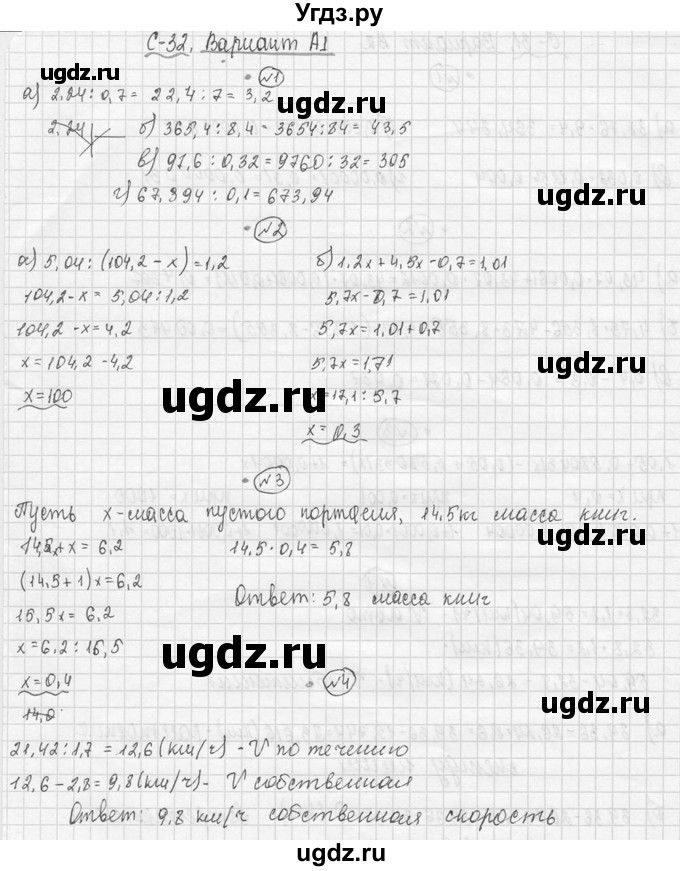 Угдз.ру
С-32. Вариант А1
№1
а) 2.24 : 0,7 = 22,4 : 7 = 3,2
2,24
б) 365,4 : 8,4 = 3654 : 84 = 43,5
в) 97,6 : 0,32 = 9760 : 32 = 305
г) 67,394 : 0,1 = 673,94
№2
а) 5,04 : (104,2 - x) = 1,2
б) 1,2x + 4,5x - 0,7 = 1,01
104,2 - x = 5,04 : 1,2
5,7x - 0,7 = 1,01
104,2 - x = 4,2
5,7x = 1,01 + 0,7
x = 104,2 - 4,2
5,7x = 1,71
x = 100
x = 17,1 : 5,7
x = 0,3
№3
Пусть x - масса пустого портфеля, 14,5кг масса книг.
14,5x + x = 6,2
14,5 · 0,4 = 5,8
(14,5 + 1)x = 6,2
Ответ: 5,8 масса книг
15,5x = 6,2
x = 6,2 : 15,5
x = 0,4
№4
21,42 : 1,7 = 12,6 (км/ч) - V по течению
12,6 - 2,8 = 9,8 (км/ч) - V собственная
Ответ: 9,8 км/ч собственная скорость
ugdz.ru
ugdz.ru
ugdz.ru
ugdz.ru
ugdz.ru
ugdz.ru
ugdz.ru
ugdz.ru
ugdz.ru
ugdz.ru
ugdz.ru
ugdz.ru
ugdz.ru